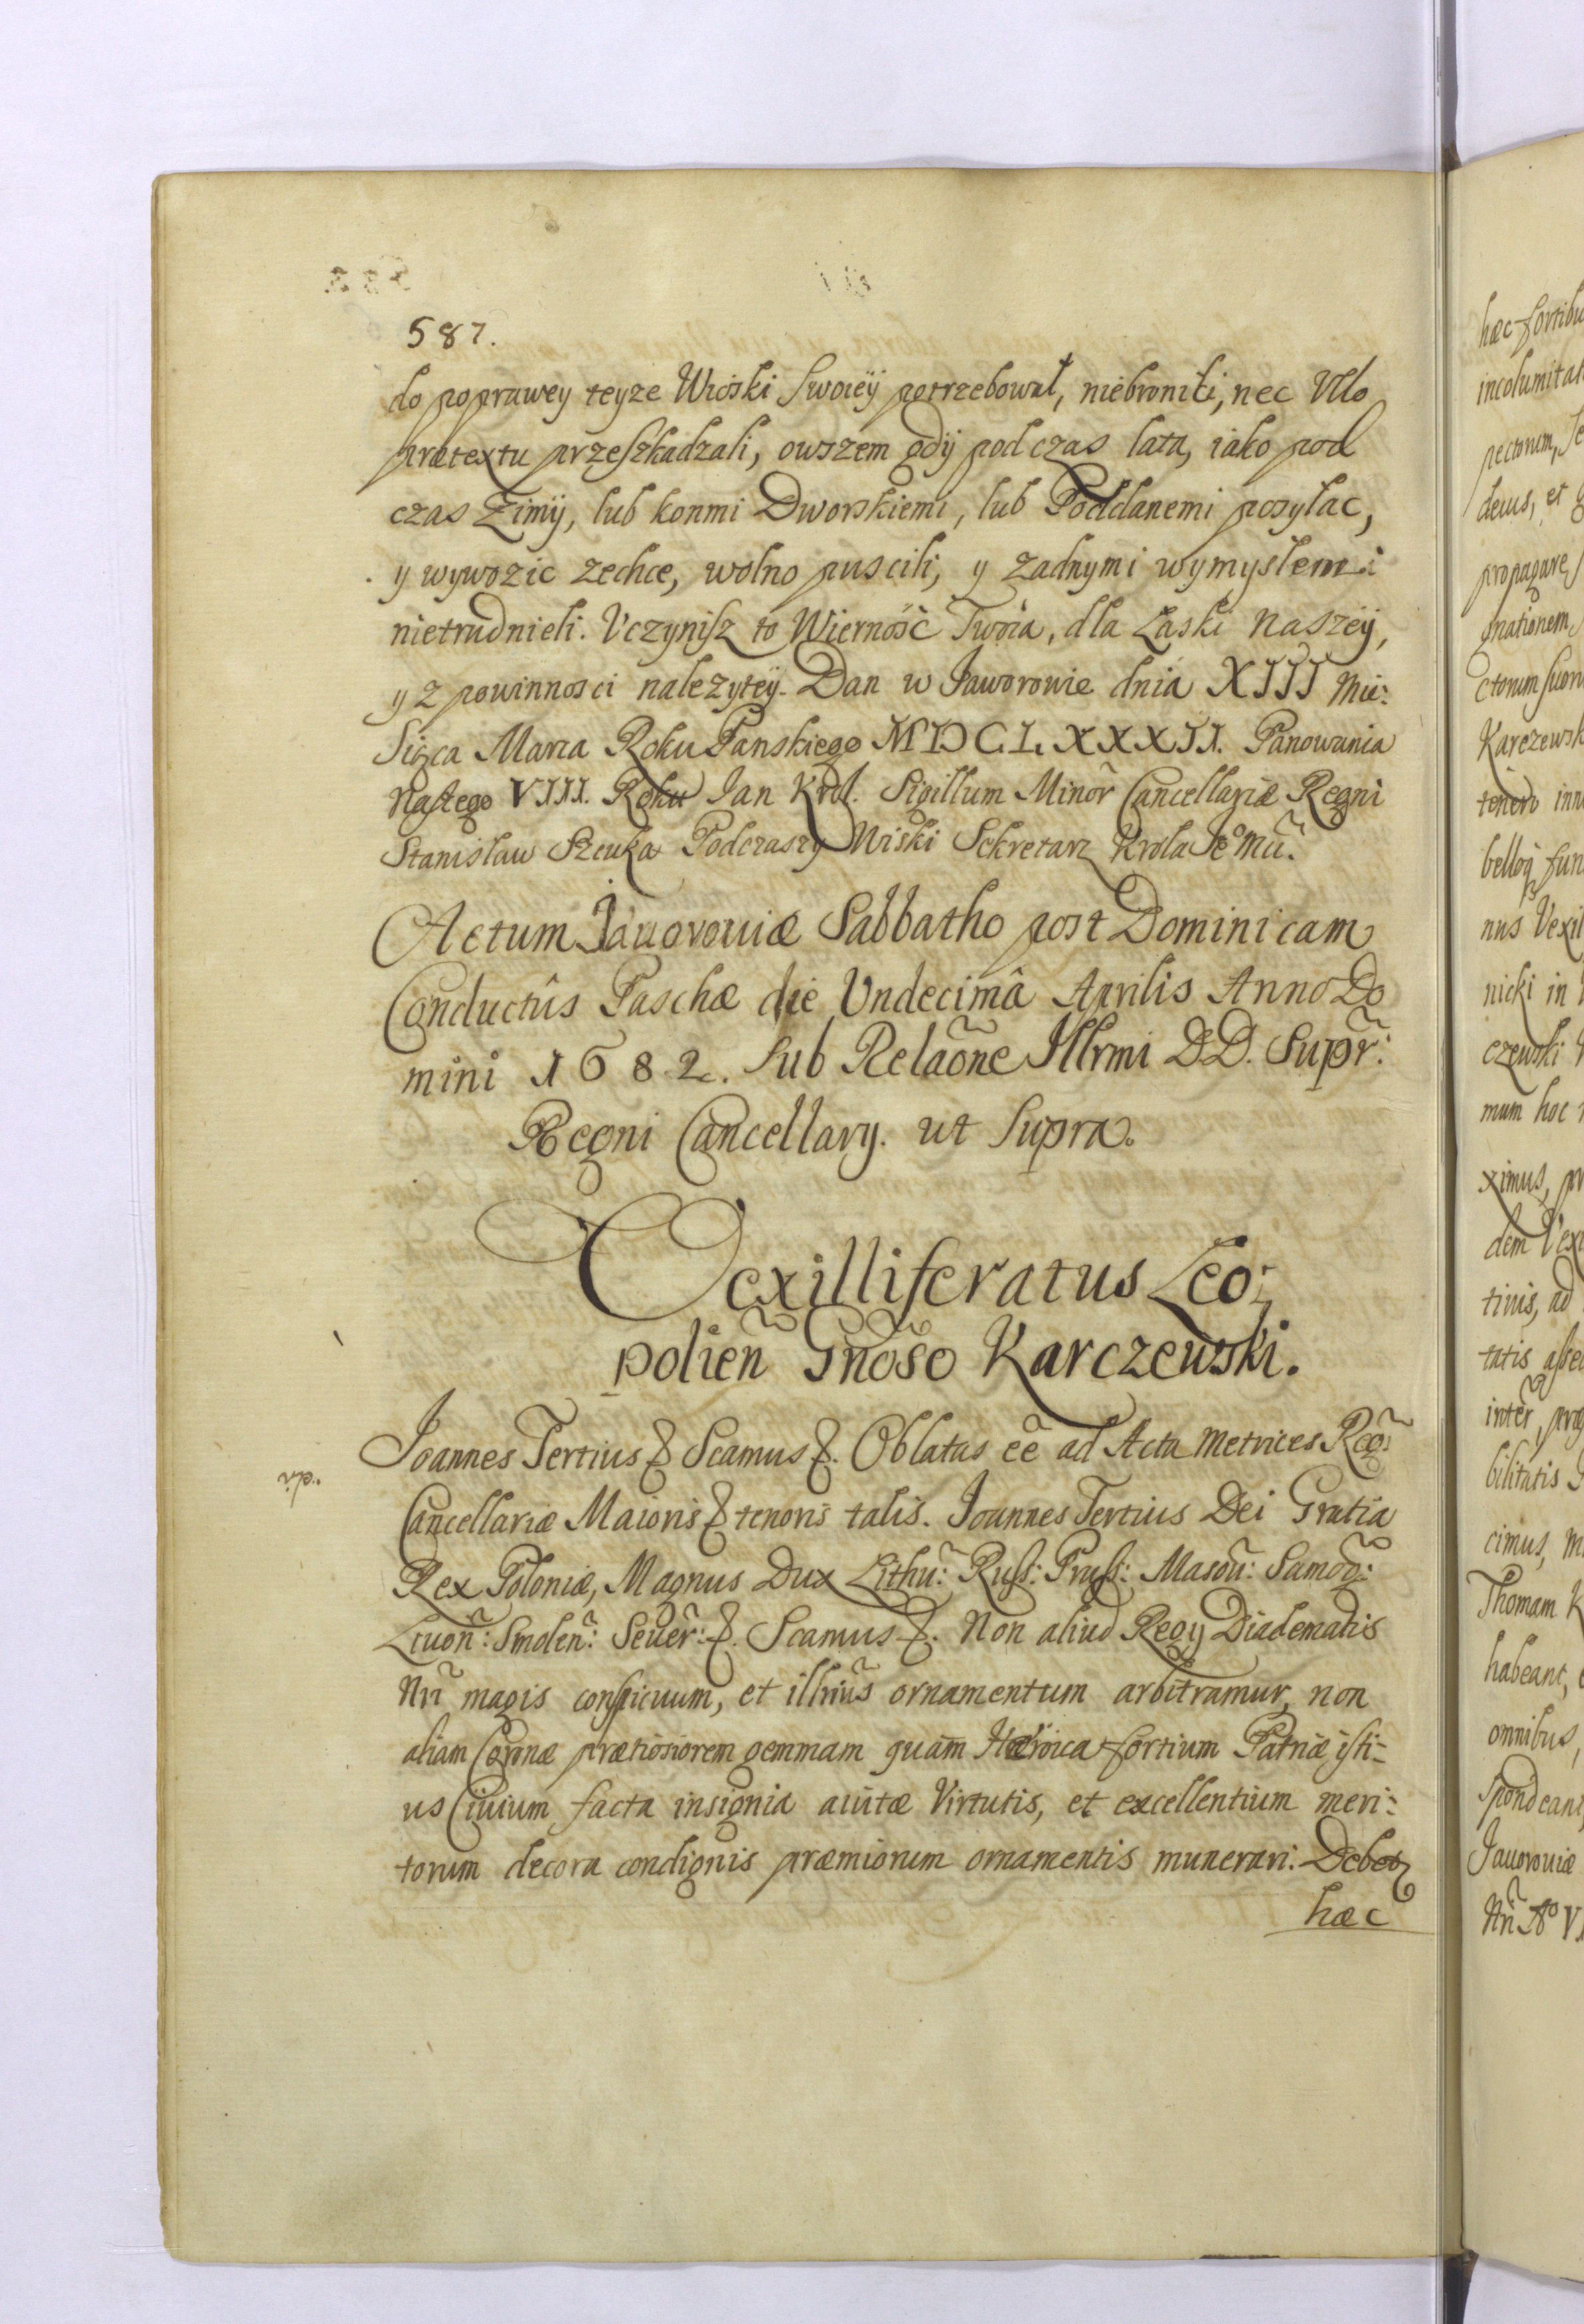 587.
do poprawey teyze Wioski Swoiëÿ potrzebował, niebronili, nec Vllo
prætextu przeszkadzali, owszem gdÿ pod czas lata, iako pod
czas Zimÿ, lub konmi Dworskiemi, lub Poddanemi posyłac,
y wywozic zechce, wolno puscili, y zadnymi wymysłemi
nietrudnieli. Vczynisz to Wierność Twoia, dla Łaski naszëy,
y z powinnosci nalezytëÿ. Dan w Jaworowie dnia XIII Mie:
Siąca Marca Roku Panskiego MDCLXXXII. Panowania
naszego VIII. Roku Jan Krol. Sigillum Minor̃ Cancellariæ Regni
Stanisław Szczuka Podczaszy Wiski Sekretarz Krola Je° Mci.
Actum Jauorouiæ Sabbatho post Dominicam
Conductûs Paschæ die Vndecimâ Aprilis Anno Do
mini 1682. Sub Relaõne Illrmi DD. Supr̃:
Regni Cancellary. ut Supra.
Vexilliferatus Leo:
polieñ Gñoso Karczewski.
Joannes Tertius & Scamus &. Oblatas eẽ ad Acta Metrices Reg̃:
Cancellariæ Maioris & tenoris talis. Joannes Tertius Dei Gratia
Rex Poloniæ, Magnus Dux Lithũ: Russ: Pruss: Masoũ: Samog̃:
Liuoñ: Smoleñ: Seuer̃: &. Scamus &. Non aliud Regy Diadematis
Nr̃i magis conspicuum, et illrius ornamentum arbitramur, non
aliam Coronæ prætiosiorem gemmam quàm Hæroica fortium Patriæ isti-
us Ciuium facta insignia auitæ Virtutis, et excellentium meri:
torum decora condignis præmiorum ornamentis munerari. Debet
hæc
hæc fortibu
incolumitat
pectorum, Se
deus, et g
propagare,
gnationem,
ctorum suor
Karczewsk
tenero inn
bellog fun
nus Vexil
nicki in
czewski
mum hoc
ximus, pr
dem Vexi
tinis, ad
tatis asse
inter̃, pro
bilitatis G
cimus, M
Thomam K
habeant,
omnibus,
Spondeant
Jauorouiæ
Nr̃i A° V